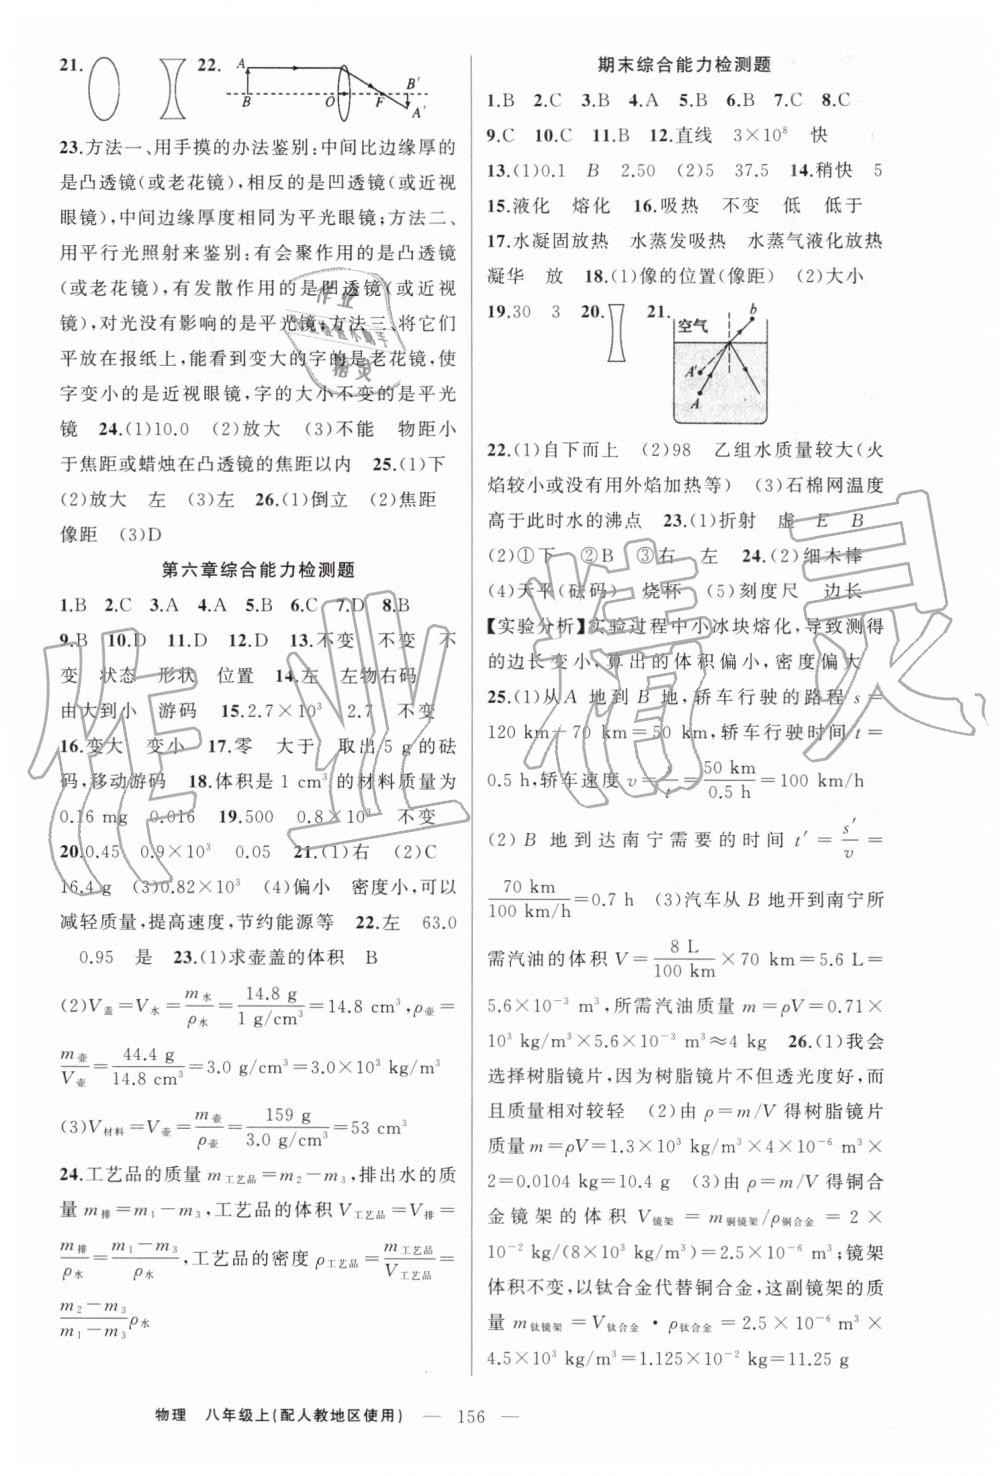 21. 22. A B O F B′ A′
23.方法一、用手摸的办法鉴别:中间比边缘厚的
是凸透镜(或老花镜),相反的是凹透镜(或近视
眼镜),中间边缘厚度相同为平光眼镜;方法二、
用平行光照射来鉴别:有会聚作用的是凸透镜
(或老花镜),有发散作用的是凹透镜(或近视
镜),对光没有影响的是平光镜;方法三、将它们
平放在报纸上,能看到变大的字的是老花镜,使
字变小的是近视眼镜,字的大小不变的是平光
镜 24.(1)10.0 (2)放大 (3)不能 物距小
于焦距或蜡烛在凸透镜的焦距以内 25.(1)下
(2)放大 左 (3)左 26.(1)倒立 (2)焦距
像距 (3)D
第六章综合能力检测题
1.B 2.C 3.A 4.A 5.B 6.C 7.D 8.B
9.B 10.D 11.D 12.D 13.不变 不变 不
变 状态 形状 位置 14.左 左物右码
由大到小 游码 15.2.7×10³ 2.7 不变
16.变大 变小 17.零 大于 取出 5 g 的砝
码,移动游码 18.体积是 1 cm³ 的材料质量为
0.16 mg 0.016 19.500 0.8×10³ 不变
20.0.45 0.9×10³ 0.05 21.(1)右 (2)C
16.4 g (3)0.82×10³ (4)偏小 密度小,可以
减轻质量,提高速度,节约能源等 22.左 63.0
0.95 是 23.(1)求壶盖的体积 B
(2)V盖=V水=m水/ρ水=14.8 g/1 g/cm³=14.8 cm³,ρ壶=
m壶/V壶=44.4 g/14.8 cm³=3.0 g/cm³=3.0×10³ kg/m³
(3)V材料=V壶=m壶/ρ壶=159 g/3.0 g/cm³=53 cm³
24.工艺品的质量 m工艺品=m₂-m₃,排出水的质
量 m排=m₁-m₃,工艺品的体积 V工艺品=V排=
m排/ρ水=m₁-m₃/ρ水,工艺品的密度 ρ工艺品=m工艺品/V工艺品=
m₂-m₃/m₁-m₃ρ水
期末综合能力检测题
1.B 2.C 3.B 4.A 5.B 6.B 7.C 8.C
9.C 10.C 11.B 12.直线 3×10⁸ 快
13.(1)0.1 B 2.50 (2)5 37.5 14.稍快 5
15.液化 熔化 16.吸热 不变 低 低于
17.水凝固放热 水蒸发吸热 水蒸气液化放热
凝华 放 18.(1)像的位置(像距) (2)大小
19.30 3 20. 21. 空气 b A′ A
22.(1)自下而上 (2)98 乙组水质量较大(火
焰较小或没有用外焰加热等) (3)石棉网温度
高于此时水的沸点 23.(1)折射 虚 E B
(2)①下 ②B ③右 左 24.(2)细木棒
(4)天平(砝码) 烧杯 (5)刻度尺 边长
【实验分析】实验过程中小冰块熔化,导致测得
的边长变小,算出的体积偏小,密度偏大
25.(1)从A 地到 B 地,轿车行驶的路程 s=
120 km-70 km=50 km,轿车行驶时间 t=
0.5 h,轿车速度 v=s/t=50 km/0.5 h=100 km/h
(2) B 地到达南宁需要的时间 t′=s′/v=
70 km/100 km/h=0.7 h (3)汽车从 B 地开到南宁所
需汽油的体积 V=8 L/100 km×70 km=5.6 L=
5.6×10⁻³ m³,所需汽油质量 m=ρV=0.71×
10³ kg/m³×5.6×10⁻³ m³≈4 kg 26.(1)我会
选择树脂镜片,因为树脂镜片不但透光度好,而
且质量相对较轻 (2)由 ρ=m/V 得树脂镜片
质量 m=ρV=1.3×10³ kg/m³×4×10⁻⁶ m³×
2=0.0104 kg=10.4 g (3)由 ρ=m/V 得铜合
金镜架的体积 V镜架=m铜镜架/ρ铜合金=2×
10⁻² kg/(8×10³ kg/m³)=2.5×10⁻⁶ m³;镜架
体积不变,以钛合金代替铜合金,这副镜架的质
量 m钛镜架=V钛合金·ρ钛合金=2.5×10⁻⁶ m³×
4.5×10³ kg/m³=1.125×10⁻² kg=11.25 g
物理 八年级上(配人教地区使用) — 156 —
作业精灵